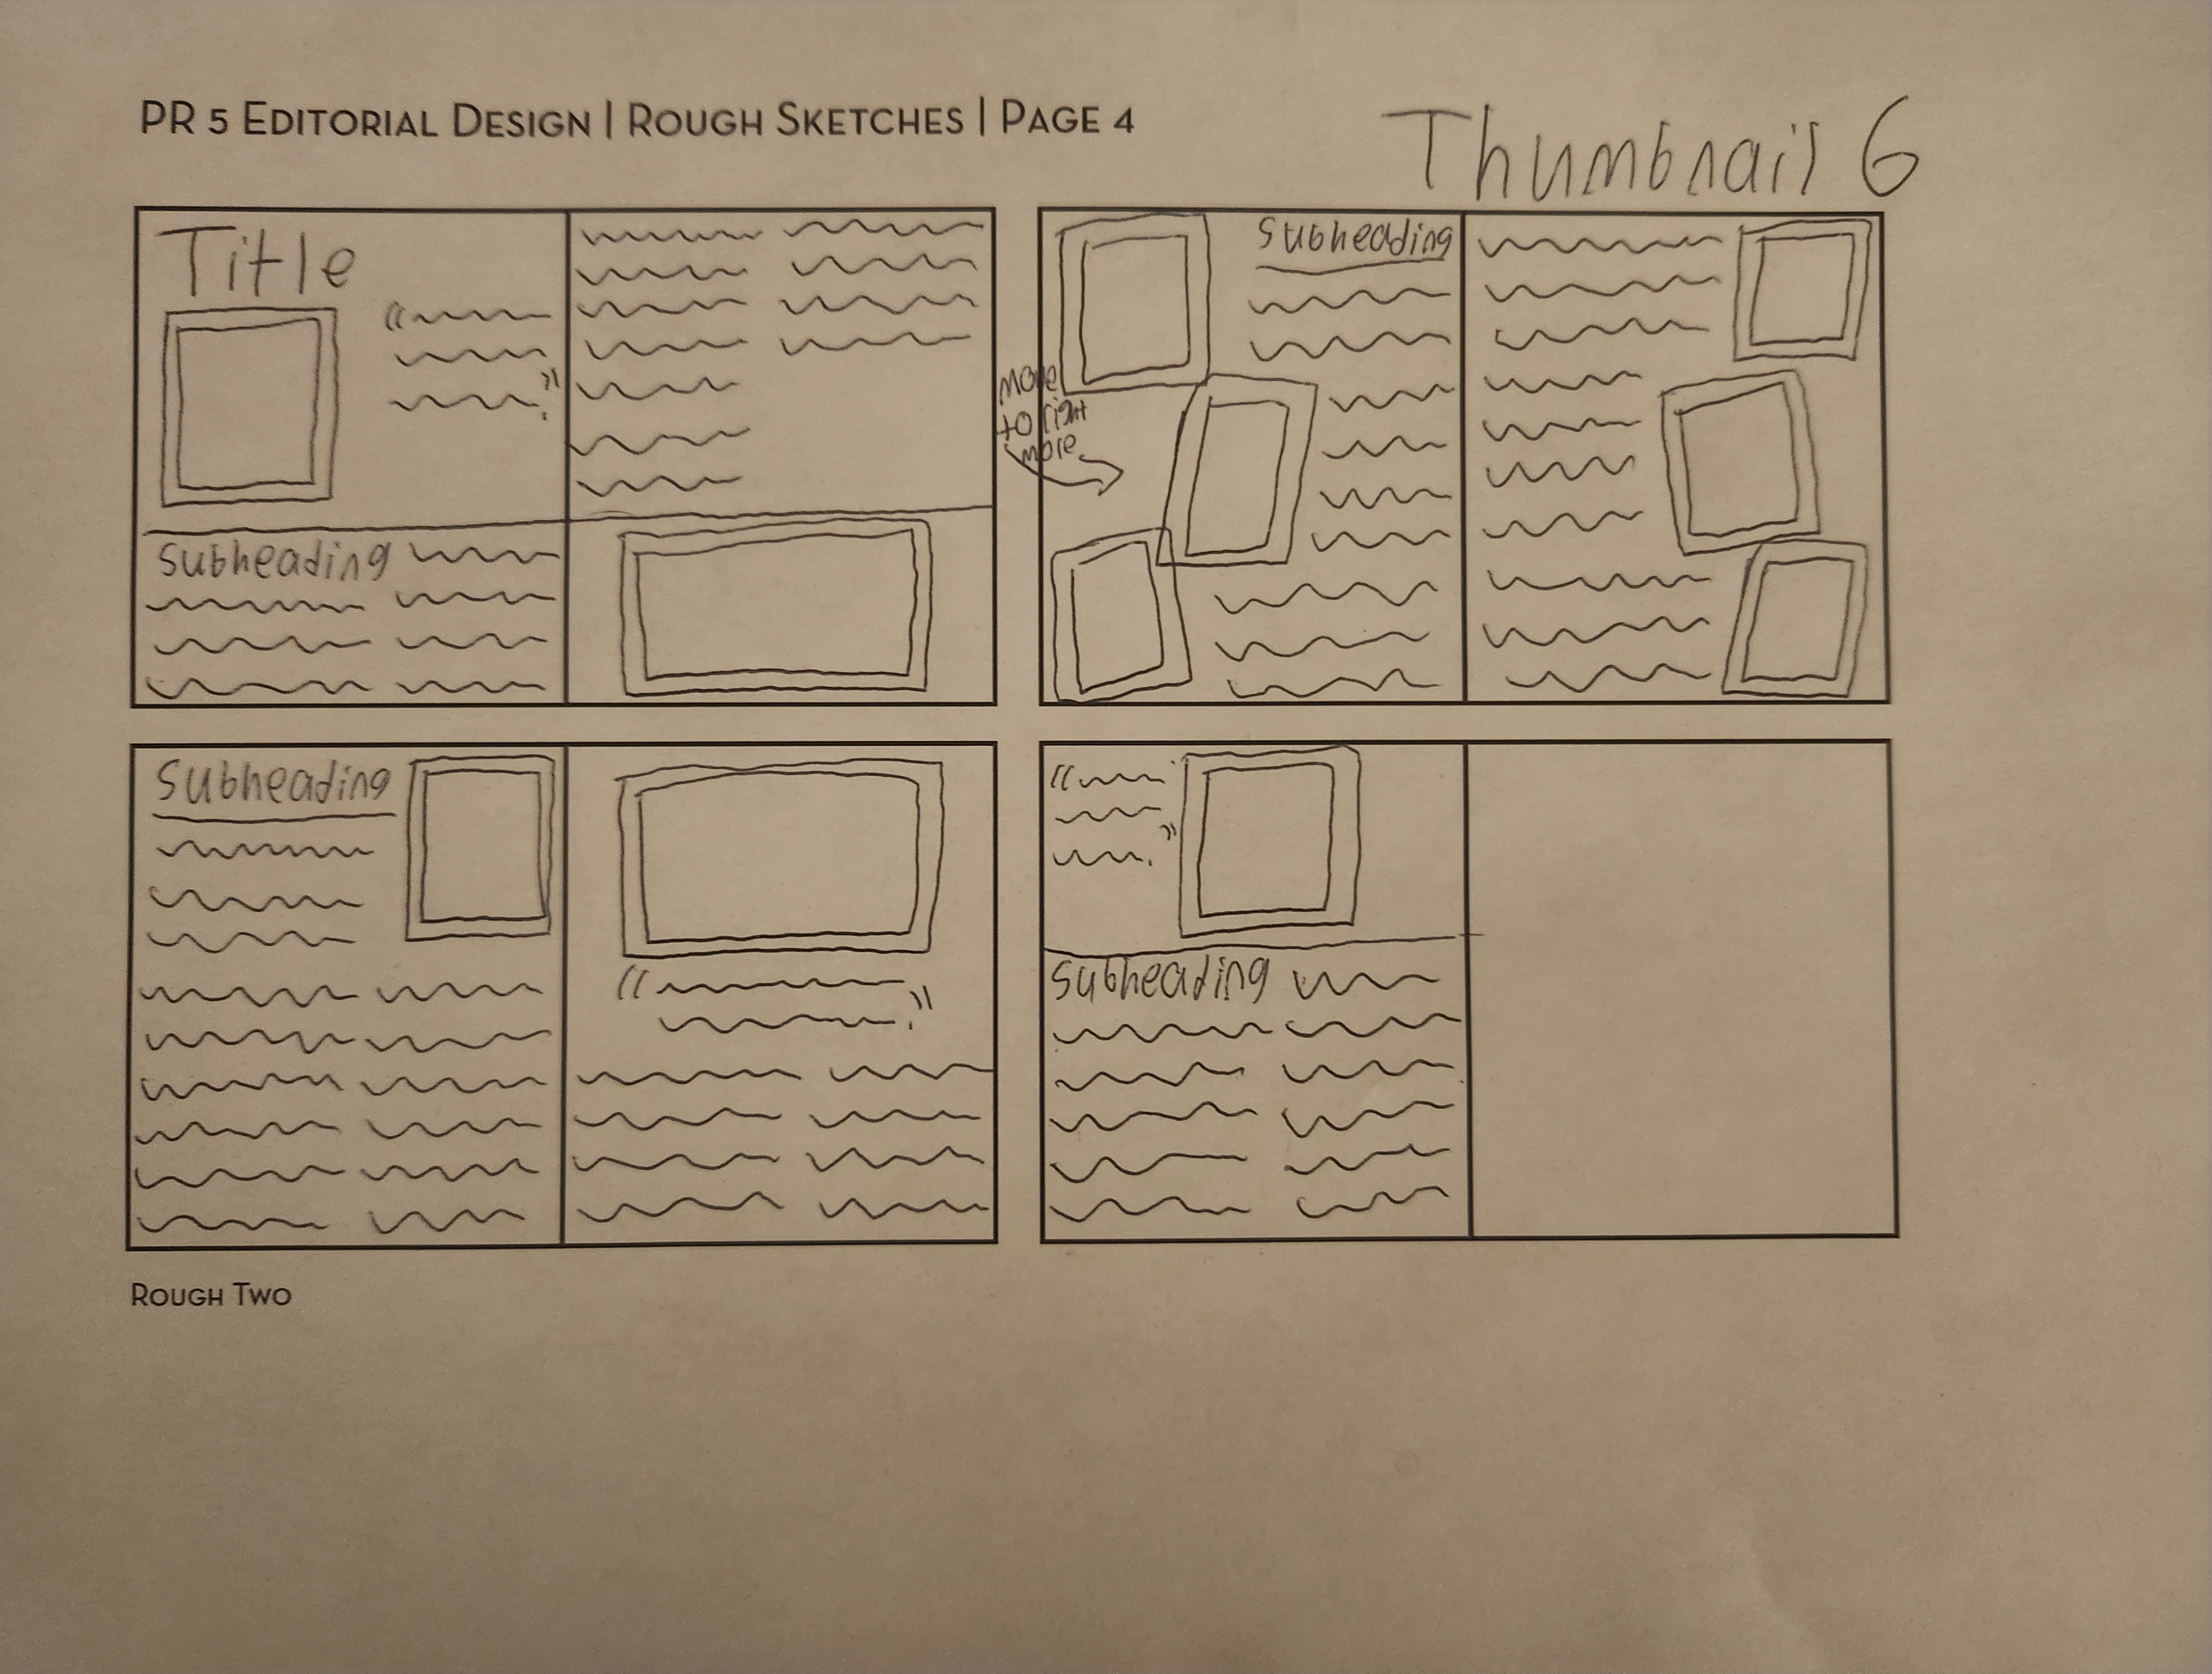 PR 5 Editorial Design | Rough Sketches | Page 4
Thumbnail 6
Title
Subheading
Subheading
move
to right
more
Subheading
Subheading
Rough Two